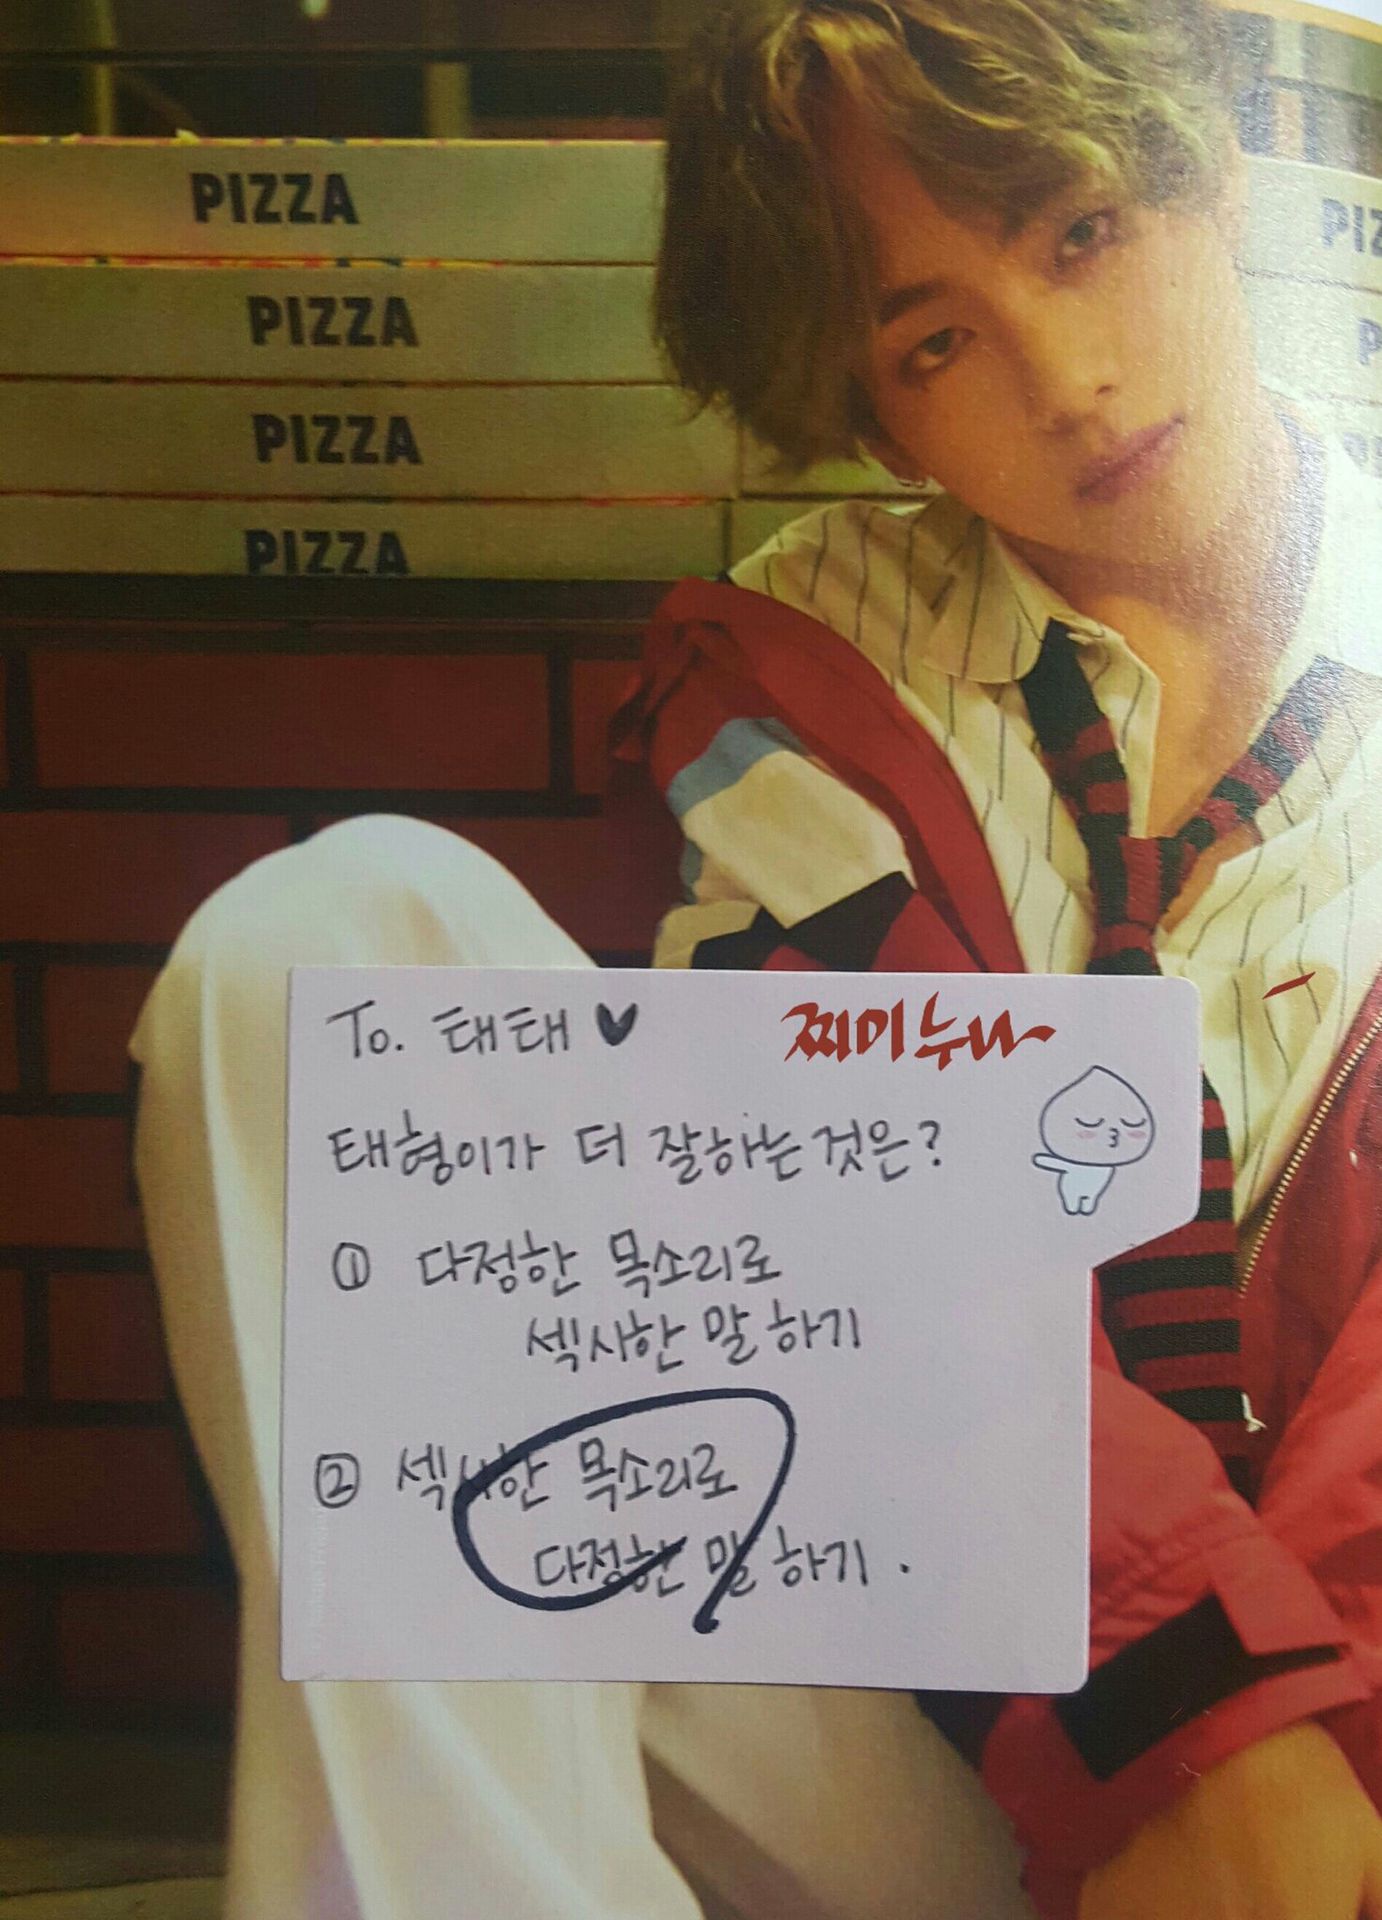 PIZZA
PIZZA
PIZZA
PIZZA
PIZ
P
To. 태태 ♥
찌미누나
태형이가 더 잘하는 것은?
① 다정한 목소리로
섹시한 말 하기
② 섹시한 목소리로
다정한 말 하기.